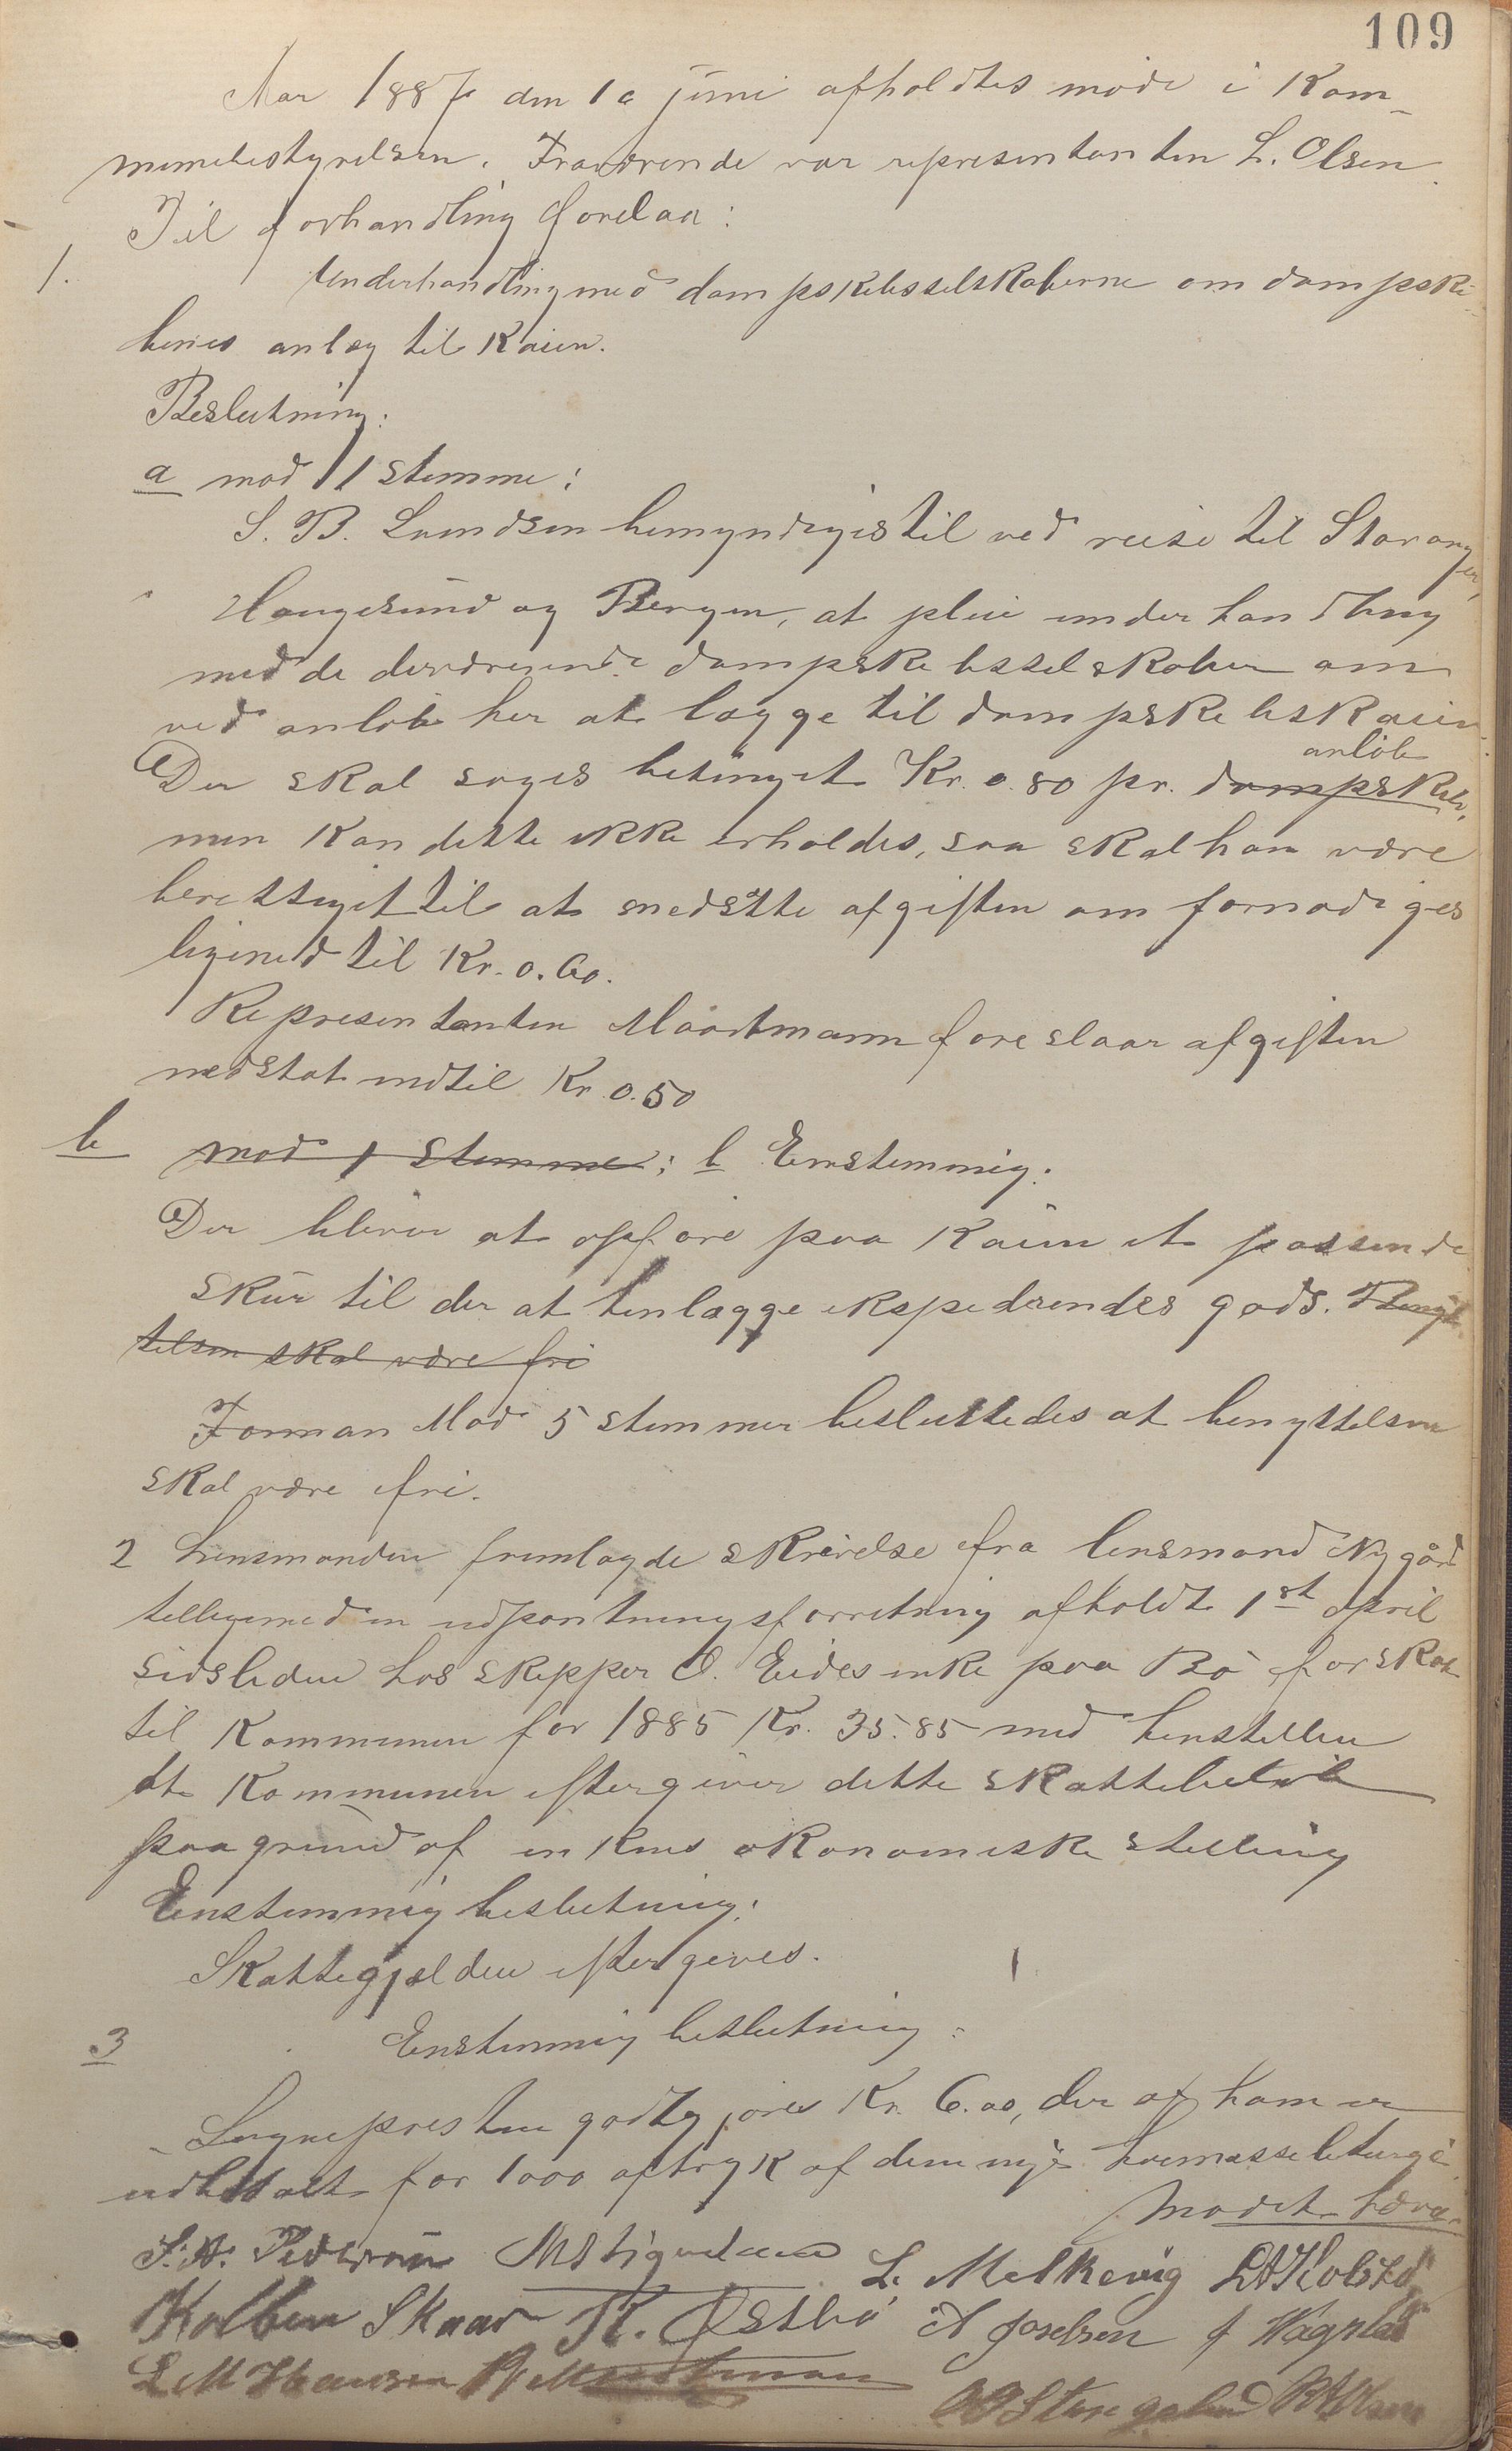 109
Aar 1887 den 10 juni afholdtes møde i Kom-
munebestyrelsen. Fraværende var representanten L. Olsen.
Til forhandling forelaa:
1. Underhandling med dampskibsselskaberne om dampski-
benes anlæg til Kaien.
Beslutning:
a mod 1 stemme:
S. B. Svendsen bemyndiges til ved reise til Stavanger,
Haugesund og Bergen, at pleie underhandling
med de derværende dampskibsselskaber om
ved anløb her at lægge til dampskibskaien.
anløb
Der skal søges betinget Kr. 0.80 pr. dampskib,
men kan dette ikke erholdes, saa skal han være
berettiget til at nedsætte afgiften om fornødiges
ligened til Kr. 0.60.
Representanten Maartmann foreslaar afgiften
nedsat indtil Kr. 0.50
b mod 1 stemme; b Enstemmig:
Der bliver at opføre paa Kaien et passende
skur til der at henlægge ekspederendes gods. Benyt-
telsen skal være fri
Forman Mod 5 stemmer besluttedes at benyttelsen
skal være fri.
2 Lensmanden fremlagde skrivelse fra lensmand Nygård
tilligemed en udpantningsforretning afholdt 1st april
sidstleden hos skipper O. Eides enke paa Bø for skat
til Kommunen for 1885 Kr. 35.85 med henstillen
at Kommunen eftergiver dette skattebeløb
paa grund af enkens økonomiske stilling
Enstemmig beslutning:
Skattegjælden eftergives.
3 Enstemmig beslutning:
Sognepresten godtgjøres Kr. 6.00, der af ham er
udbetalt for 1000 aftryk af den nye høimesseliturgi.
Mødet hævet
J. A. Pedersen L. Melkevig
Kolben Skaar R. Østbø A Joselsen
L M Hansen